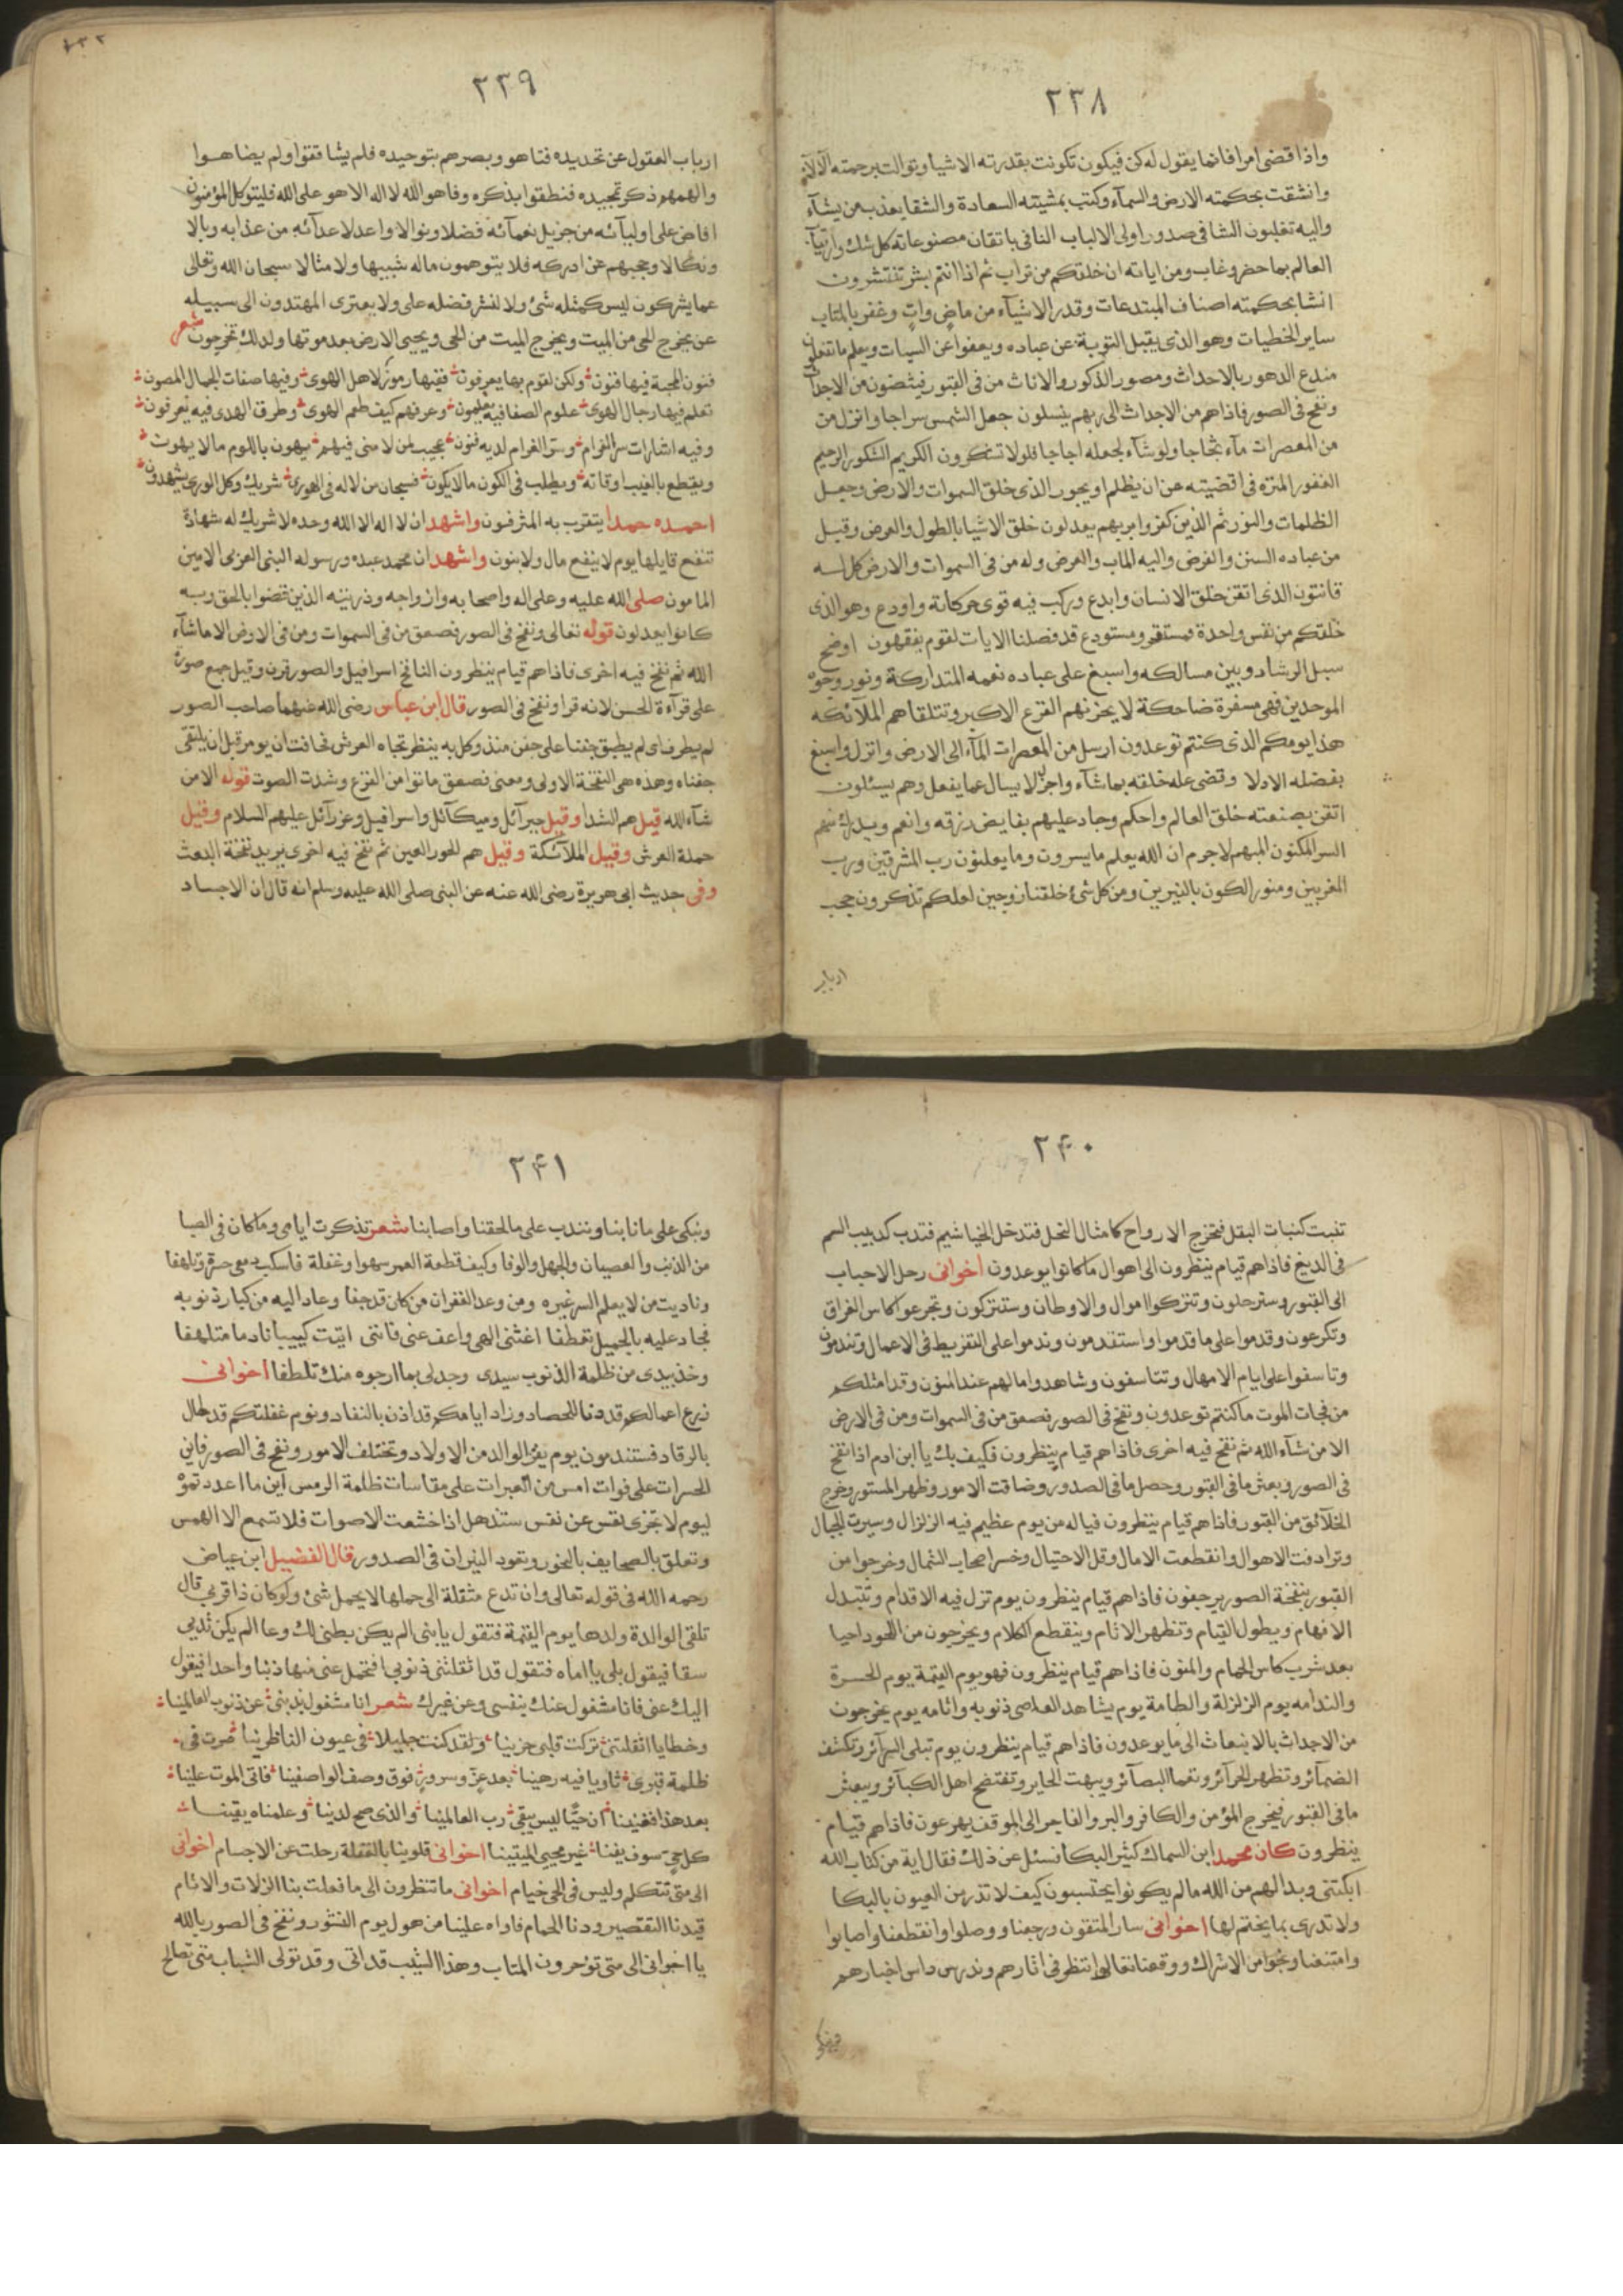 ٢٣٨
واذا قضى امرا فانما يقول له كن فيكون تكونت بقدرته الاشيا وتوالت برحمته الآلآء
وانشقت بحكمته الارض والسمآء وكتب بمشيته السعادة والشقا يعذب من يشآء
واليه تقلبون الشافى صدور اولى الالباب النافى باتقان مصنوعاته كل شك وارتيآب
العالم بما حضر وغاب ومن اياته ان خلقكم من تراب ثم اذا انتم بشر تنتشرون
انشا بحكمته اصناف المبتدعات وقدر الاشيآء من ماضٍ واتٍ وغفر بالمتاب
ساير الخطيات وهو الذى يقبل التوبة عن عباده ويعفوا عن السيات ويعلم ما تفعلون
مبدع الدهور بالاحداث ومصور الذكور والاناث من فى القبور فينهضون من الاجداث
ونفخ فى الصور فاذا هم من الاجداث الى ربهم ينسلون جعل الشمس سراجا وانزل من
من المعصرات مآء ثجاجا ولو شآء لجعله اجاجا فلولا تشكرون الكريم الشكور الرحيم
الغفور المنزه فى اقضيته عن ان يظلم او يجور الذى خلق السموات والارض وجعل
الظلمات والنور ثم الذين كفروا بربهم يعدلون خلق الاشيا بالطول والعرض وقبل
من عباده السنن والفرض واليه الماب والعرض وله من فى السموات والارض كل له
قانتون الذى اتقن خلق الانسان وابدع وركب فيه قوى حركاتة واودع وهو الذى
خلقكم من نفس واحدة فمستقر ومستودع قد فصلنا الايات لقوم يفقهون اوضح
سبل الرشاد وبين مسالكه واسبغ على عباده نعمه المتداركة ونور وجوه
الموحدين فهى مسفرة ضاحكة لا يحزنهم الفزع الاكبر وتتلقاهم الملآئكه
هذا يومكم الذى كنتم توعدون ارسل من المعصرات المآء الى الارض وانزل واسبغ
بفضله الادلا وقضى على خلقه بما شآء واجزل لا يسال عما يفعل وهم يسئلون
اتقن بصنعته خلق العالم واحكم وجاد عليهم بفايض رزقه وانعم ويدرك منهم
السر المكنون المبهم لا جرم ان الله يعلم ما يسرون وما يعلنون رب المشرقين ورب
المغربين ومنور الكون بالنيرين ومن كل شئ خلقنا زوجين لعلكم تذكرون حجب
ارباب
٢٣٩
ارباب العقول عن تحديده فتاهو وبصرهم بتوحيده فلم يشاققوا ولم يضاهوا
والهمهم ذكر تمجيده فنطقوا بذكره وفاهوا الله لا اله الا هو على الله فليتوكل المؤمنون
افاض على اوليآئه من جزيل نعمآئه فضلا ونوالا واعد لاعدآئه من عذابه وبالا
ونكالا وحجبهم عن ادركه فلا يتوهمون ماله شبيها ولا مثالا سبحان الله وتعالى
عما يشركون ليس كمثله شئ ولا لنشر فضله على ولا يعترى المهتدون الى سبيله
عن يخرج الحى من الميت ويخرج الميت من الحى ويحيى الارض بعد موتها وكذلك تخرجون شعر
فنون المحبة فيها فنون ولكن لقوم بها يعرفون ففيها رموز لاهل الهوى وفيها صفات الجمال المصون
تعلم فيها رجال الهوى علوم الصفا فيه يعلمون وعرفهم كيف طعم الهوى وطرق الهدى فيه يعرفون
وفيه اشارات سر الغرام وسر الغرام لديه فنون عجيب لمن لامنى فيهم يهون باللوم مالا يهون
ويقطع بالغيب اوقاته ويطلب فى الكون مالا يكون فسبحان من لا له فى الهوى شريك وكل الورى يشهدون
احمده حمدا يتقرب به المترفون واشهد ان لا اله الا الله وحده لا شريك له شهادة
تنفع قايلها يوم لا ينفع مال ولا بنون واشهد ان محمد عبده ورسوله النبى العربى الامين
المامون صلى الله عليه وعلى اله واصحابه وازواجه وذريته الذين قضوا بالحق وبه
كانوا يعدلون قوله تعالى ونفخ فى الصور فصعق من فى السموات ومن فى الارض الا ما شآء
الله ثم نفخ فيه اخرى فاذا هم قيام ينظرون النافخ اسرافيل والصور قرن وقيل جمع صورة
على قرآءة الحسن لانه قرا ونفخ فى الصور قال ابن عباس رضى الله عنهما صاحب الصور
لم يطرف اى لم يطبق جفنا على جفن منذ وكل به ينظر تجاه العرش مخافت ان يومر قبل ان يلتقى
جفناه وهذه هى النفخة الاولى ومعنى فصعق ماتوا من الفزع وشدت الصوت قوله الا من
شآء الله قيل هم الشهدا وقيل جبرآئل وميكآئل واسرافيل وعزرآئل عليهم السلام وقيل
حملة العرش وقيل الملآئكة وقيل هم الحور العين ثم نفخ فيه اخرى يريد نفخة البعث
وفى حديث ابى هريرة رضى الله عنه عن النبى صلى الله عليه وسلم انه قال ان الاجساد
٢٤٠
تنبت كنبات البقل فتخرج الارواح كامثال النحل فتدخل الخياشيم فتدب كدبيب السم
فى اللديغ فاذا هم قيام ينظرون الى اهوال ما كانوا يوعدون اخوانى رحل الاحباب
الى القبور وسترحلون وتتركوا اموال والاوطان وستتركون وتجرعوا كاس الفراق
وتكرعون وقدموا على ما قدموا واستقدمون وندموا على التفريط فى الاعمال وتندمون
وتاسفوا على ايام الامهال وتتاسفون وشاهدوا ما لهم عند المنون وقد امثلكم
من فجات الموت ما كنتم توعدون ونفخ فى الصور فصعق من فى السموات ومن فى الارض
الا من شآء الله ثم نفخ فيه اخرى فاذا هم قيام ينظرون فكيف بك يا ابن ادم اذا نفخ
فى الصور وبعثر ما فى القبور وحصل ما فى الصدور وضاقت الامور وظهر المستور وخرج
الخلآئق من القبور فاذا هم قيام ينظرون فياله من يوم عظيم فيه الزلزال وسيرت الجبال
وترادفت الاهوال وانقطعت الامال وقل الاحتيال وخسر اصحاب الشمال وخرجوا من
القبور بنفخة الصور يرجفون فاذا هم قيام ينظرون يوم تزل فيه الاقدام وتتبدل
الافهام ويطول القيام وتظهر الاثام وينقطع الكلام ويخرجون من اللحود احيا
بعد شرب كاس الحمام والمنون فاذا هم قيام ينظرون فهو يوم القيمة يوم الحسرة
والندامه يوم الزلزلة والطامة يوم يشاهد العاصى ذنوبه واثامه يوم يخرجون
من الاجداث بالانبعاث الى ما يوعدون فاذا هم قيام ينظرون يوم تبلى السرآئر وتكشف
الضمآئر وتظهر الجرآئر وتعما البصآئر ويبهت الحاير وتفتضح اهل الكبآئر ويبعثر
ما فى القبور فيخرج المؤمن والكافر والبر والفاجر الى الموقف يهرعون فاذا هم قيام
ينظرون كان محمد ابن السماك كثير البكا فسئل عن ذلك فقال اية من كتاب الله
ابكتنى وبدا لهم من الله مالم يكونوا يحتسبون كيف لا تذرمن العيون بالبكا
ولا تدرى بما يختم لها اخوانى سار المتقون ورجعنا ووصلوا وانقطعنا واصابوا
وامتنعنا ونجوا من الاشراك ووقعنا تعالى انتظر فى اثارهم وندرس داس اخبارهم
ونبكى
٢٤١
ونبكى على ما نابنا ونندب على ما لحقنا واصابنا شعر تذكرت ايامى وما كان فى الصبا
من الذنب والعصيان والجهل والوفا وكيف قطعة العمر سهوا وغفلة فاسكب دمعى حسرة وتلهفا
وناديت من لا يعلم السر غيره ومن وعد الغفران من كان قد جفا وعاد اليه من كبار ذنوبه
فجاد عليه بالجميل تعطفا اغثنى الهى واعف عنى فاننى اتيت كييبا نادما متلهفا
وخذ بيدى من ظلمة الذنوب سيدى وجد لى بما ارجوه منك تلطفا اخوانى
زرع اعمالكم قد دنا للحصاد وزاد ايامكم قد اذن بالنفاد ونوم غفلتكم قد طال
بالرقاد فستندمون يوم يفر الوالد من الاولاد وتختلف الامور ونفخ فى الصور فاين
الحسرات على فوات امس من العبرات على مقاسات ظلمة الرمس اين ما اعددتموه
ليوم لا تجزى نفس عن نفس ستذهل اذا خشعت الاصوات فلا تسمع الا الهمس
وتعلق بالصحايف بالنحور وتقود النيران فى الصدور قال الفضيل ابن عياض
رحمه الله فى قوله تعالى وان تدع مثقلة الى حملها لا يحمل شئ ولو كان ذا قربى قال
تلقى الوالدة ولدها يوم القيمة فتقول يا بنى الم يكن بطنى لك وعا الم يكن ثديى
سقا فيقول بلى يا اماه فتقول قد اثقلتنى ذنوبى فتحمل عنى منها ذنبا واحدا فيقول
اليك عنى فانا مشغول عنك بنفسى وعن غيرك شعر انا مشغول بذنبى عن ذنوب العالمينا
وخطايا اثقلتنى تركت قلبى حزينا ولقد كنت جليلا فى عيون الناظرينا صرت فى
ظلمة قبرى ثاويا فيه رهينا بعد عز وسرور فوق وصف الواصفينا فاتى الموت علينا
بعد هذا فنينا ان حيا ليس يبقى رب العالمينا والذى صح لدينا وعلمناه يقينا
كل حى سوف يفنا غير محيى الميتينا اخوانى قلوبنا بالغفلة رحلت عن الاجسام اخوانى
الى متى تتكلم وليس فى الحى خيام اخوانى ما تنظرون الى ما فعلت بنا الزلات والاثام
قيدنا التقصير ودنا الحمام فاواه علينا من هول يوم النشور ونفخ فى الصور بالله
يا اخوانى الى متى تؤخرون المتاب وهذا الشيب قد اتى وقد تولى الشباب متى تصالح